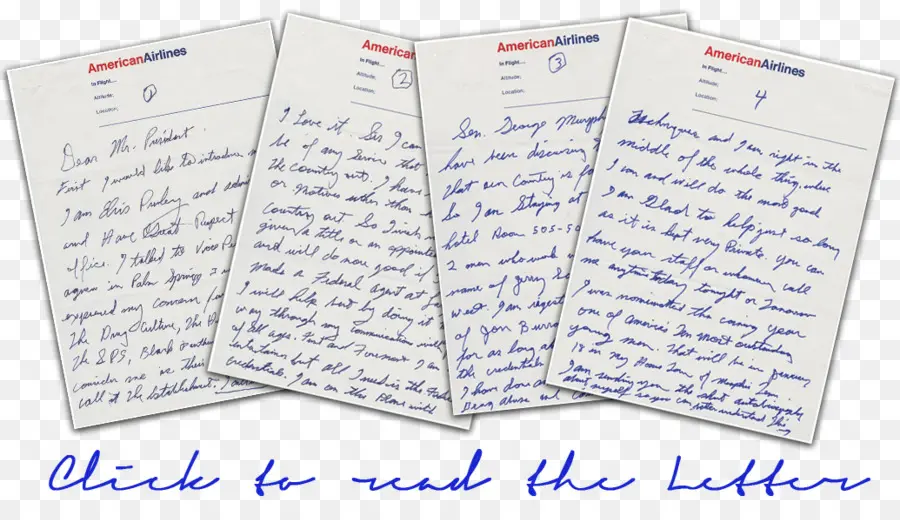 AmericanAirlines
In Flight...
Altitude:
Location:
1
Dear Mr. President.
First I would like to introduce
I am Elvis Presley and
and Have Great Respect
office. I talked to Vice
in Palm Springs
expressed my concern
The Drug Culture, The
The SDS, Black
consider me as their
call it The Establishment.
American
In Flight...
Altitude:
Location:
2
I Love it. Sir I can
be of any Service that
the country out. I have
or motives other than
country out So I wish
given a title or an appointed
and will do more good if
made a Federal agent at
I will help but by doing it
way through my communications with
of all ages. First and Foremost I am
entertainer but all I need is the Federal
credentials. I am on this Plane with
AmericanAirlines
In Flight...
Altitude:
Location:
3
Sen. George Murphy
have been discussing
that our Country is
So I am Staying at
hotel Room 505-50
2 men who work
name of Jerry
west. I am
of Jon Burro
for as long as
the credentials
I have done
Drug abuse and
AmericanAirlines
In Flight...
Altitude:
Location:
4
Techniques and I am right in the
middle of the whole thing, where
I can and will do the most good
I am Glad to help just so long
as it is kept very Private. You can
have your staff or whomever call
me anytime today tonight or Tomorrow
I was nominated the coming year
one of America's Ten most outstanding
young men. That will be in January
18 in my Home Town of Memphis Tenn.
I am sending you the short autobiography
about myself so you can better understand this
Click to read the Letter